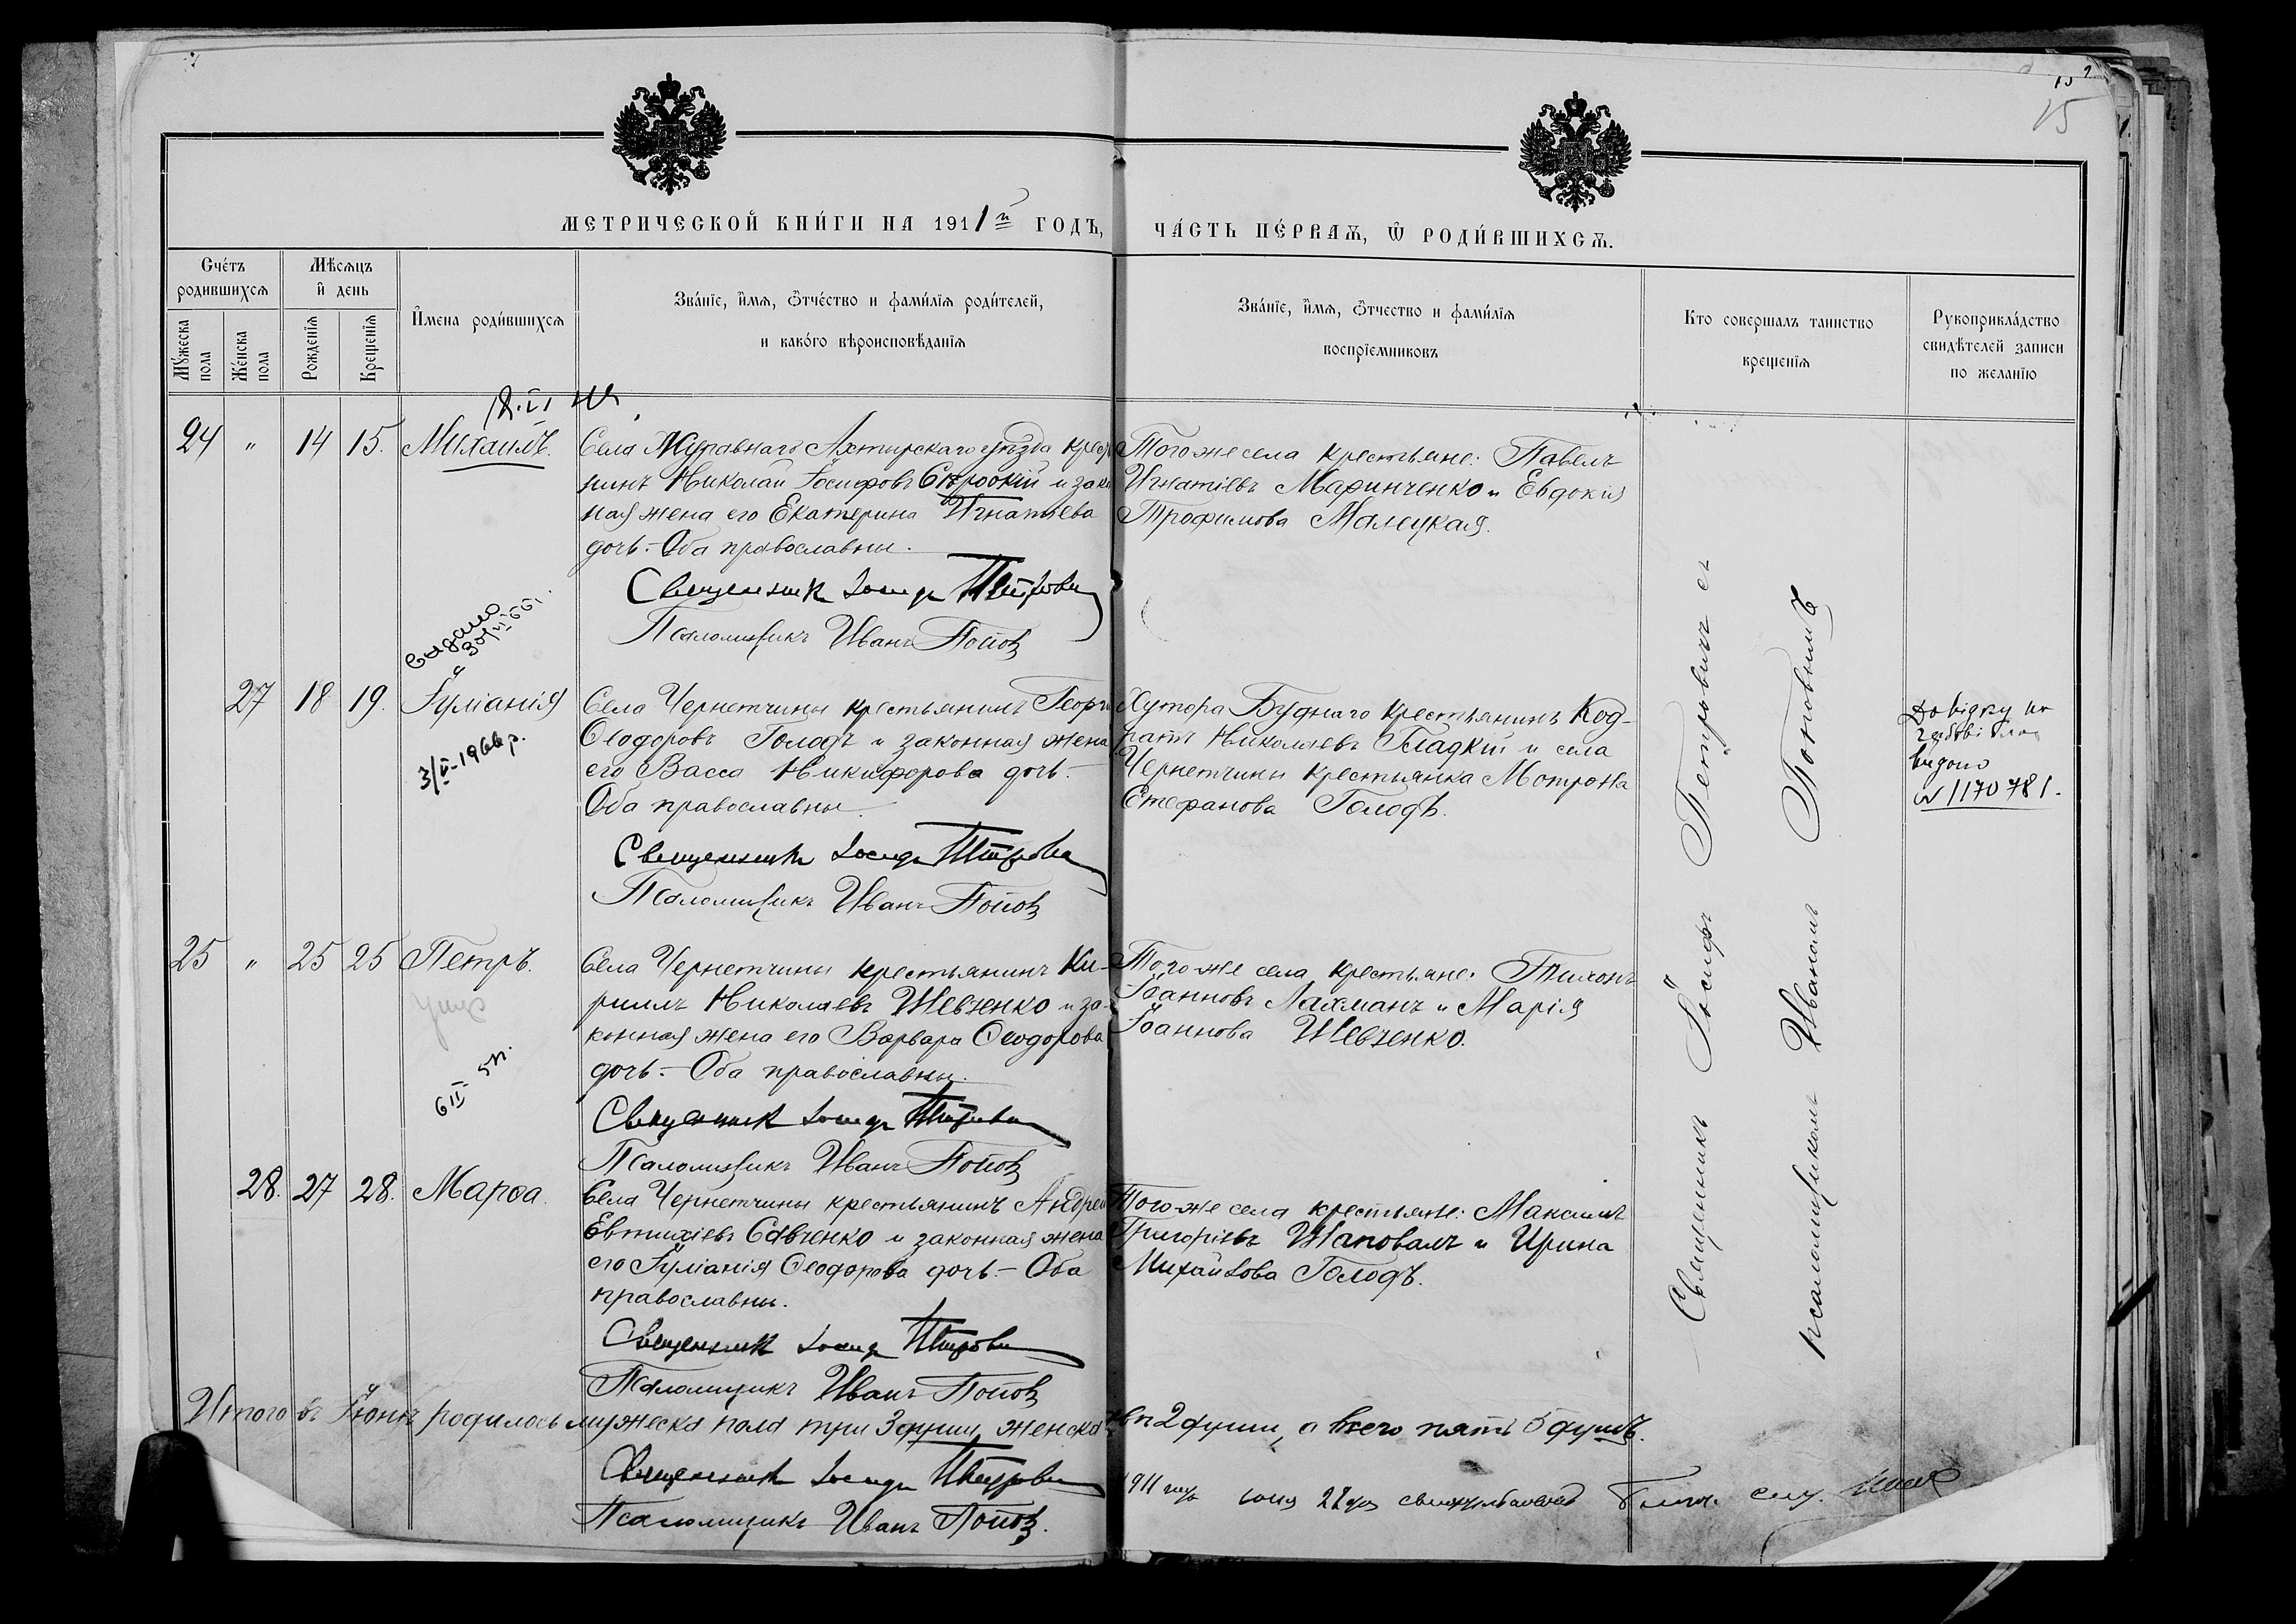 15
15
МЕТРИЧЕСКОЙ КНИ́ГИ НА 1911й ГОДЪ, ЧА́СТЬ ПЕ́РВАѦ, Ѿ РОДИ́ВШИХСѦ.
Сче́тъ родившихсѧ
Мѣсѧцъ и день
Мꙋ́жеска пола
Же́нска пола
Рожденїѧ
Крещенїѧ
И́мена роди́вшихсѧ
Зва́нїе, и́мѧ, ѻ҆тче́ство и фами́лїѧ роди́телей,
и како́го вѣроисповѣ́данїѧ
Зва́нїе, и́мѧ, ѻ҆тчество и фами́лїѧ
воспрїемниковъ
Кто совершалъ таинство
крещенїѧ
Рꙋкоприкла́дство
свидѣ́телей записи
по желанїю
24 " 14 15. Михаилъ.
Села Журавнаго Ахтырскаго уѣзда крест
нинъ Николай Іосифовъ и зако
ная жена его Екатерина Игнатьева
дочь. - Оба православны.
Священникъ Іосифъ Петровичъ
Псаломщикъ Иванъ Поповъ
Того же села крестьяне: Павелъ
Игнатіевъ Маринченко и Евдокія
Трофимова Малецкая.
Видано
27 18 19. Іуліанія
3/II-1966 р.
Села Чернетчины крестьянинъ Георгі
Ѳеодоровъ Голодъ и законная жена
его Васса Никифорова дочь. -
Оба православны.
Священникъ Іосифъ Петровичъ
Псаломщикъ Иванъ Поповъ
Хутора Буднаго крестьянинъ Код-
ратъ Николаевъ Гладкій и села
Чернетчины крестьянка Мотрона
Стефанова Голодъ.
Довідку
видано
N 1170781.
25 " 25 25 Петръ.
6 II 57.
Села Чернетчины крестьянинъ Ки-
риллъ Николаевъ Шевченко и за-
конная жена его Варвара Ѳеодорова
дочь. - Оба православны.
Священникъ Іосифъ Петровичъ
Псаломщикъ Иванъ Поповъ
Того же села крестьяне: Тихонъ
Іоанновъ Лахманъ и Марія
Іоаннова Шевченко.
28. 27 28. Марѳа.
Села Чернетчины крестьянинъ Андрей
Евтихіевъ Савченко и законная жена
его Іуліанія Ѳеодорова дочь. - Оба
православны.
Священникъ Іосифъ Петровичъ
Псаломщикъ Иванъ Поповъ
Того же села крестьяне: Максимъ
Григоріевъ Шаповалъ и Ирина
Михайлова Голодъ.
Священникъ Іосифъ Петровичъ съ
псаломщикомъ Иваномъ Поповымъ
Итого въ Іюнѣ родилось мужеска пола три 3 души, женска 2 души, а всего пять 5 душъ.
Священникъ Іосифъ Петровичъ
Псаломщикъ Иванъ Поповъ.
1911 года